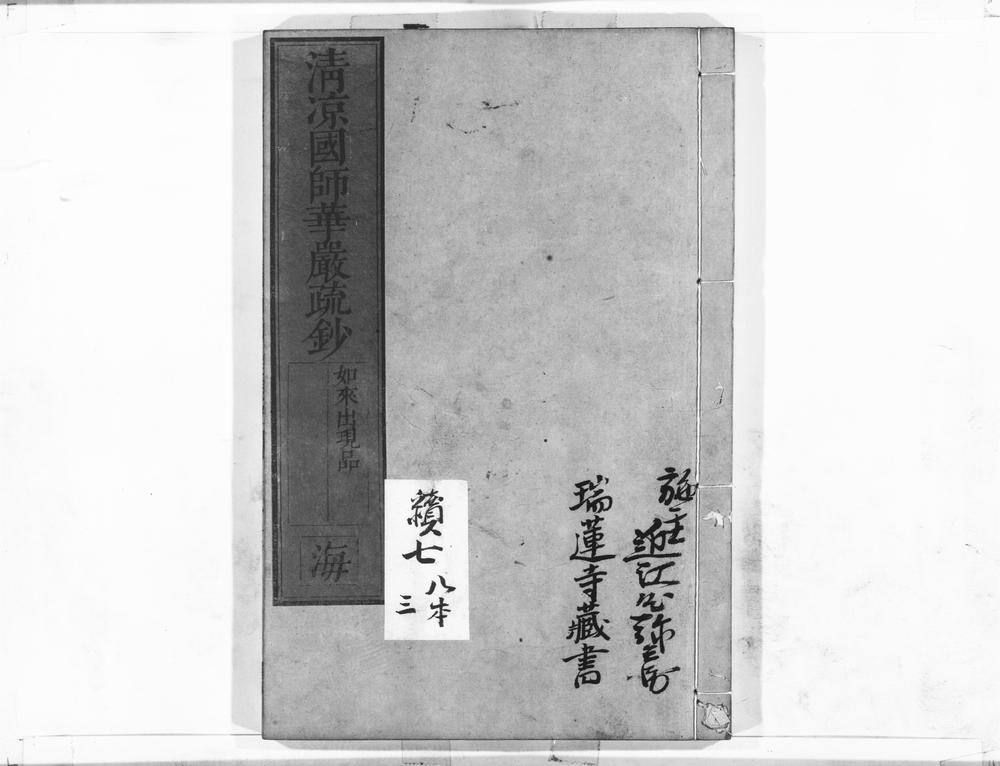 施主近江屋弥兵衛
瑞蓮寺藏書
清凉國師華嚴疏鈔
如來出現品
海
續七
八本
三